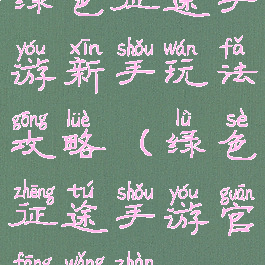 绿色征途手
yóu xīn shǒu wán fǎ
游新手玩法
gōng lüè lǜ sè
攻略（绿色
zhēng tú shǒu yóu guān
征途手游官
fāng wǎng zhàn